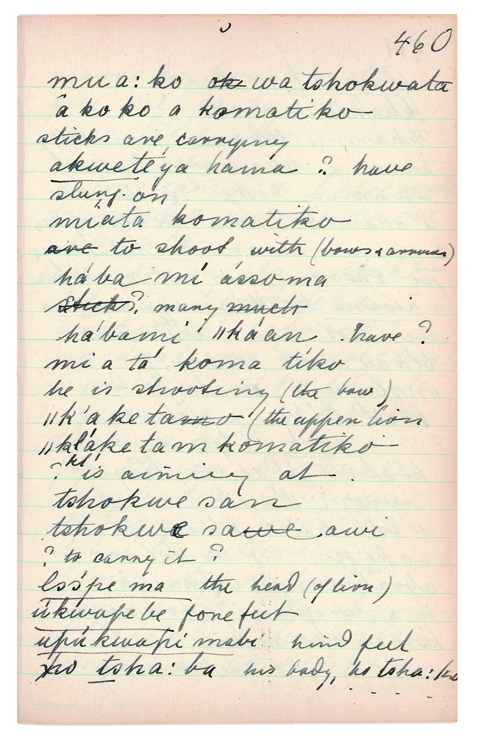 460
mu a: ko wa tshokwata
a ko ko a komatiko
sticks are, carrying
akweteya hama ? have
slung on
miata komatiko
are to shoot with (bows & arrows)
hába mí ássoma
stick?, many much
hábami ǁkáan . have ?
mi a tá koma tiko
he is shooting (the bow)
ǁk'a ke tamo (the upper lion
ǁkláke tam komatiko
? is aiming at .
tshokwe san
tshokwe sawe awi
? to carry it ?
lssípe ma the head (of lion)
úkwapebe fore feet
upúkwapi mabi hind feet
xo tsha: ba his body, ko tsha: